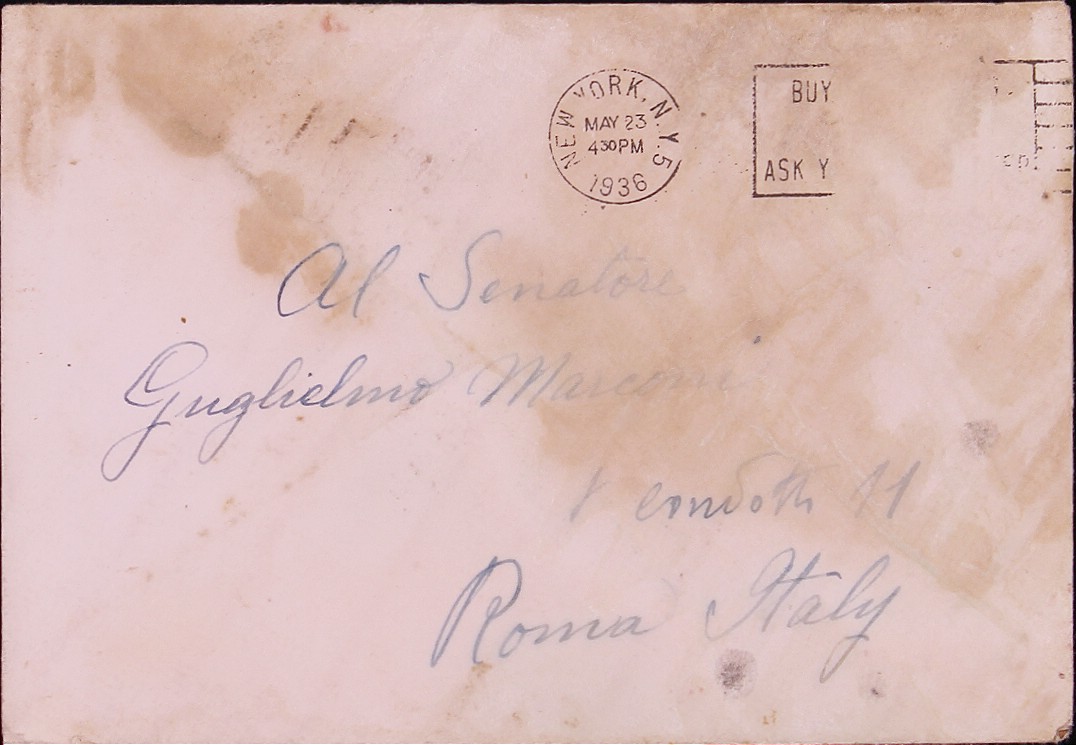 NEW YORK, N.Y. 5
MAY 23
4 30 PM
1936
BUY
ASK Y
Al Senatore
Guglielmo Marconi
condotti 11
Roma Italy